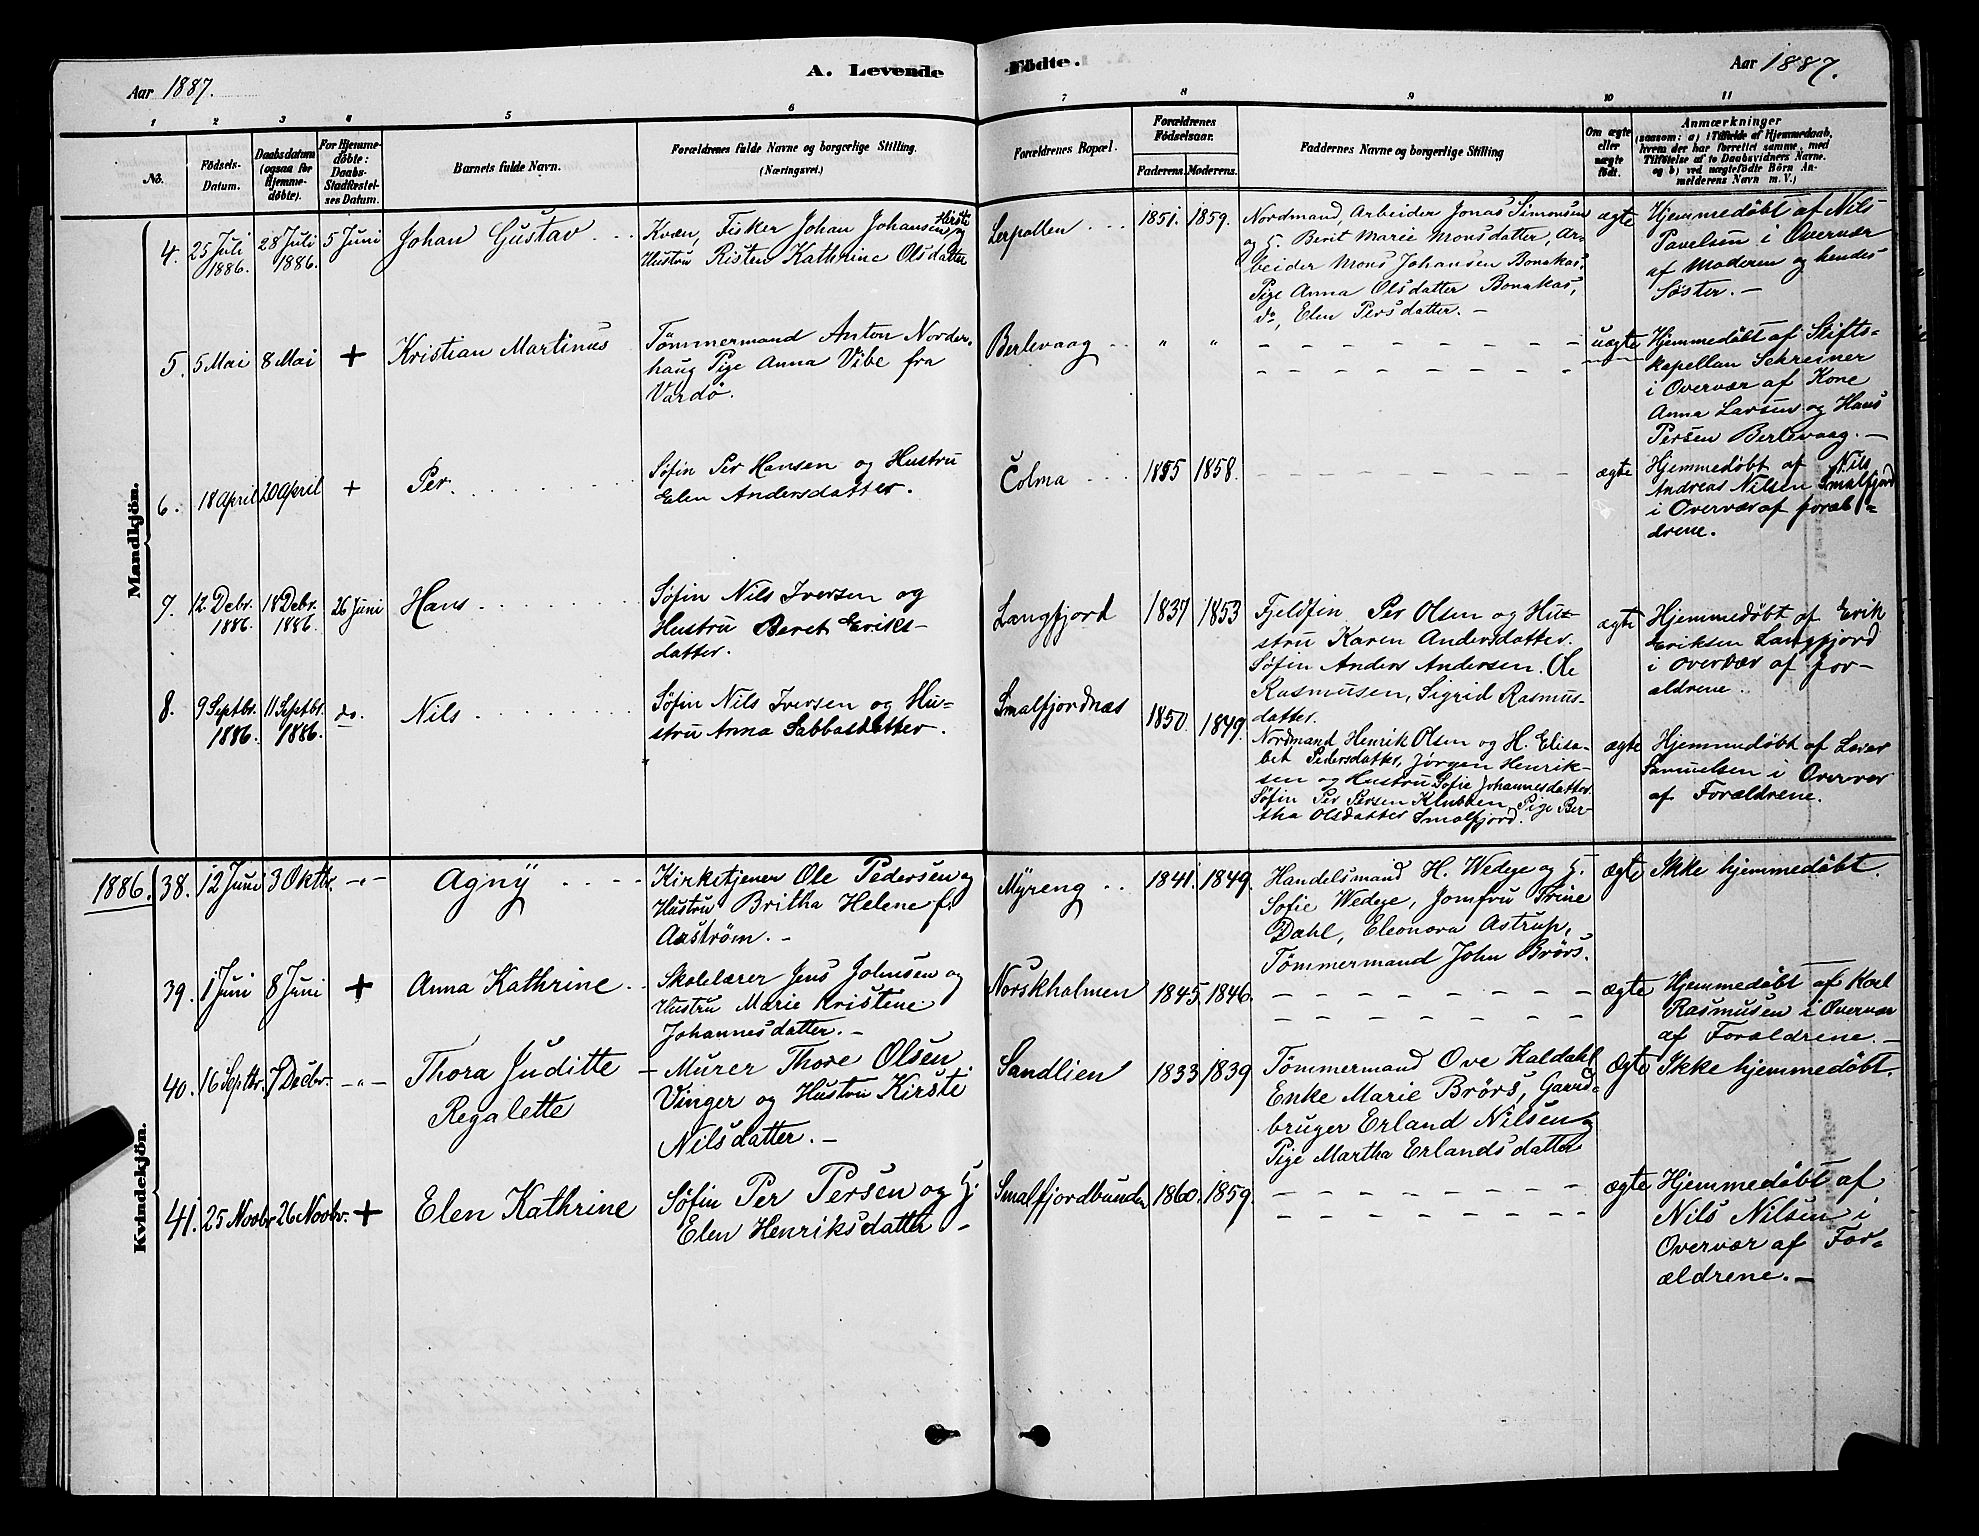 Aar 1887.
A. Levende
Födte.
Aar 1887.
1 2 3 4 5 6 7 8 9 10 11
No.
Födsels-
Datum.
Daabsdatum
(ogsaa for
Hjemme-
døbte).
For Hjemme-
døbte:
Daabs-
Stadfæstel-
ses Datum.
Barnets fulde Navn.
Forældrenes fulde Navne og borgerlige Stilling.
(Næringsvei.)
Forældrenes Bopæl.
Forældrenes
Födselsaar.
Faderens. Moderens.
Faddernes Navne og borgerlige Stilling
Om ægte
eller
uægte
født.
Anmærkninger
(saasom: a) i Tilfælde af Hjemmedaab,
hvem der har forrettet samme, med
Tilföielse af to Daabsvidners Navne.
og b) ved uægtefödte Börn An-
melderens Navn m. V.)
Mandkjön.
4. 25 Juli
1886.
28 Juli
1886.
5 Juni
Johan Gustav
Kvæn, Fisker Johan Johansen Hirsti og
Hustru Risten Kathrine Olsdatter
Lerpollen
1851. 1859.
Nordmand, Arbeider Jonas Simonsen
og H. Berit Marie Monsdatter, Ar-
beider Mons Johansen Bonakas,
Pige Anna Olsdatter Bonakas,
do, Elen Persdatter. -
ægte
Hjemmedøbt af Nils
Pavelsen i Overvær
af Moderen og hendes
Søster. -
5. 5 Mai 8 Mai +
Kristian Martinus
Tømmermand Anton Norder-
haug Pige Anna Vibe fra
Vardø.
Berlevaag
" "
uægte
Hjemmedøbt af Stifts-
kapellan Schreiner
i Overvær af Kone
Anna Larsen og Hans
Persen Berlevaag. -
6. 18 April 20 April +
Per.
Søfin Per Hansen og Hustru
Elen Andersdatter.
Čolma
1855 1858.
ægte
Hjemmedøbt af Nils
Andreas Nilsen Smalfjord
i Overvær af foræl-
drene.
7. 12 Debr.
1886.
18 Debr.
1886.
26 Juni
Hans
Søfin Nils Iversen og
Hustru Beret Eriks-
datter.
Langfjord
1837 1853
Fjeldfin Per Olsen og Hu-
stru Karen Andersdatter.
Søfin Anders Andersen. Ole
Rasmusen, Sigrid Rasmus-
datter.
ægte
Hjemmedøbt af Erik
Eriksen Langfjord
i Overvær af for-
ældrene.
8. 9 Septbr.
1886.
11 Septbr.
1886.
do.
Nils
Søfin Nils Iversen og Hu-
stru Anna Sabbasdatter.
Smalfjordnæs
1850. 1849.
Nordmand Henrik Olsen og H. Elisa-
bet Pedersdatter, Jørgen Henrik-
sen og Hustru Sofie Johannesdatter.
Søfin Per Persen Klubben, Pige Ber-
tha Olsdatter Smalfjord.
ægte
Hjemmedøbt af
Samuelsen i Overvær
af Forældrene.
Kvindekjön.
1886. 38. 12 Juni 3 Oktbr. -"-
Agny
Kirketjener Ole Pedersen og
Hustru Britha Helene f.
Aaström. -
Myreng
1841. 1849.
Handelsmand H. Wedege og H.
Sofie Wedege, Jomfru Trine
Dahl, Eleonora Astrup,
Tömmermand John Brörs.
ægte
Ikke hjemmedøbt.
39. 1 Juni 8 Juni +
Anna Kathrine
Skolelærer Jens Johnsen og
Hustru Marie Kristine
Johannesdatter. -
Norskholmen
1845. 1846.
ægte
Hjemmedøbt af Karl
Rasmusen i Overvær
af Forældrene. -
40. 16 Septbr. 7 Decbr. -"-
Thora Juditte
Regalette
Murer Thore Olsen
Vinger og Hustru Kirsti
Nilsdatter. -
Sandlien
1833 1839
Tømmermand Ove Kaldahl
Enke Marie Brörs, Gaard-
bruger Erland Nilsen og
Pige Martha Erlandsdatter
Ægte
Ikke hjemmedøbt.
41. 25 Novbr 26 Novbr. +
Elen Kathrine
Søfin Per Persen og H.
Elen Henriksdatter -
Smalfjordbunden
1860. 1859.
ægte
Hjemmedøbt af
Nils Nilsen i
Overvær af For-
ældrene. -